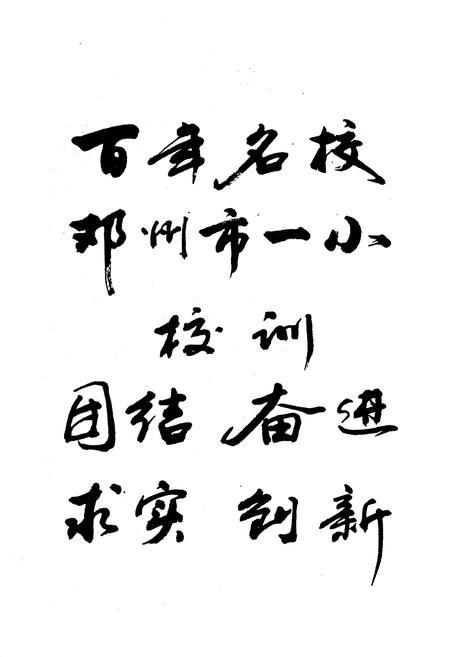 百年名校
邓州市一小
校训
团结 奋进
求实 创新